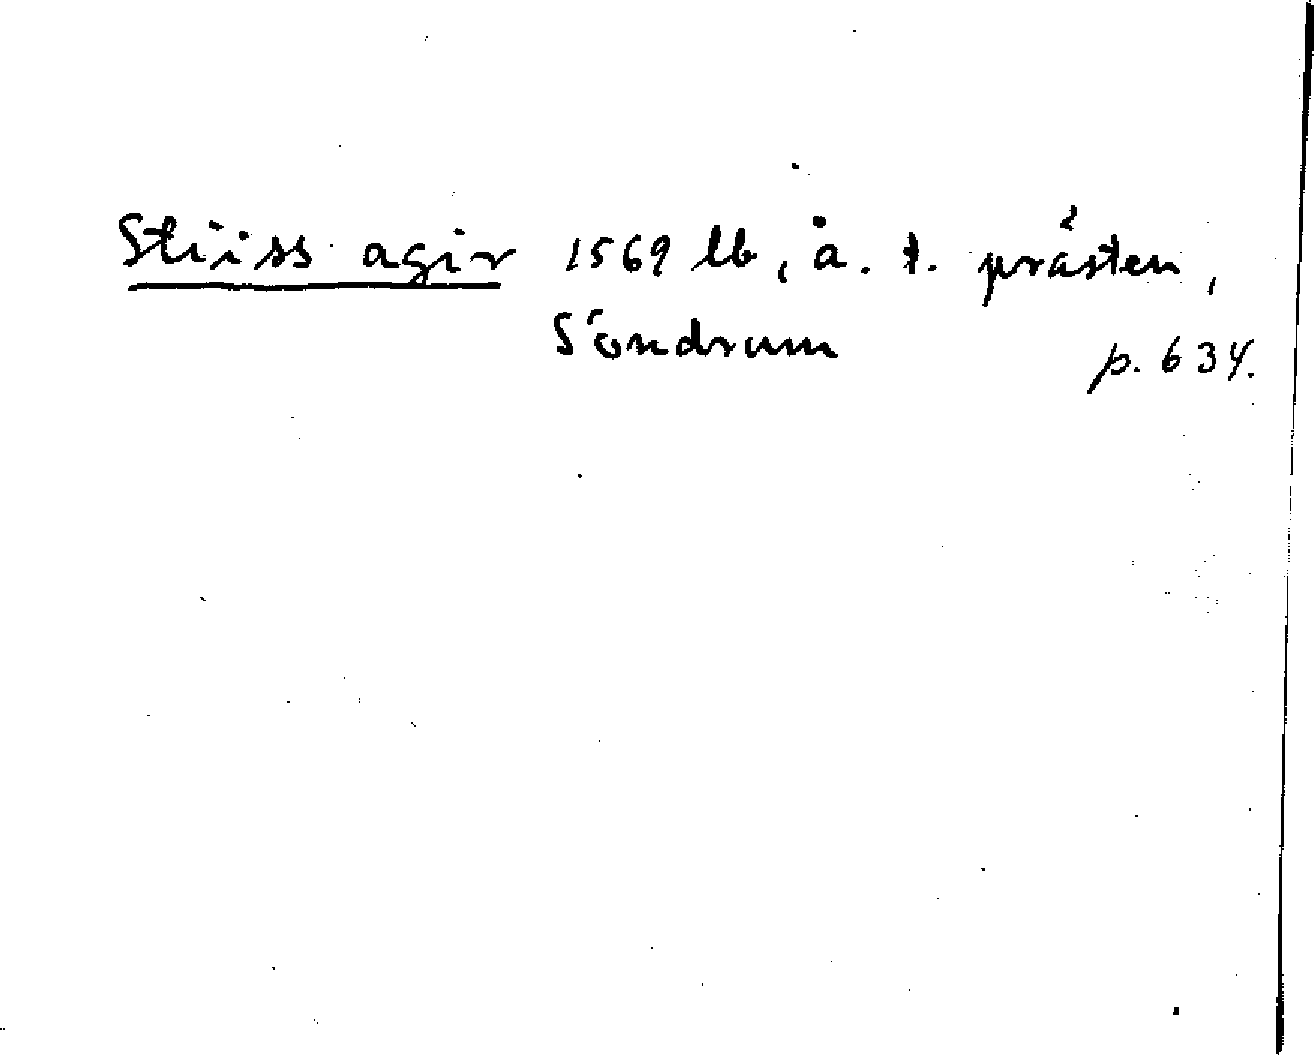 Stiiss agir 1569 lb, å. t. prästen,
Söndrum p. 634.